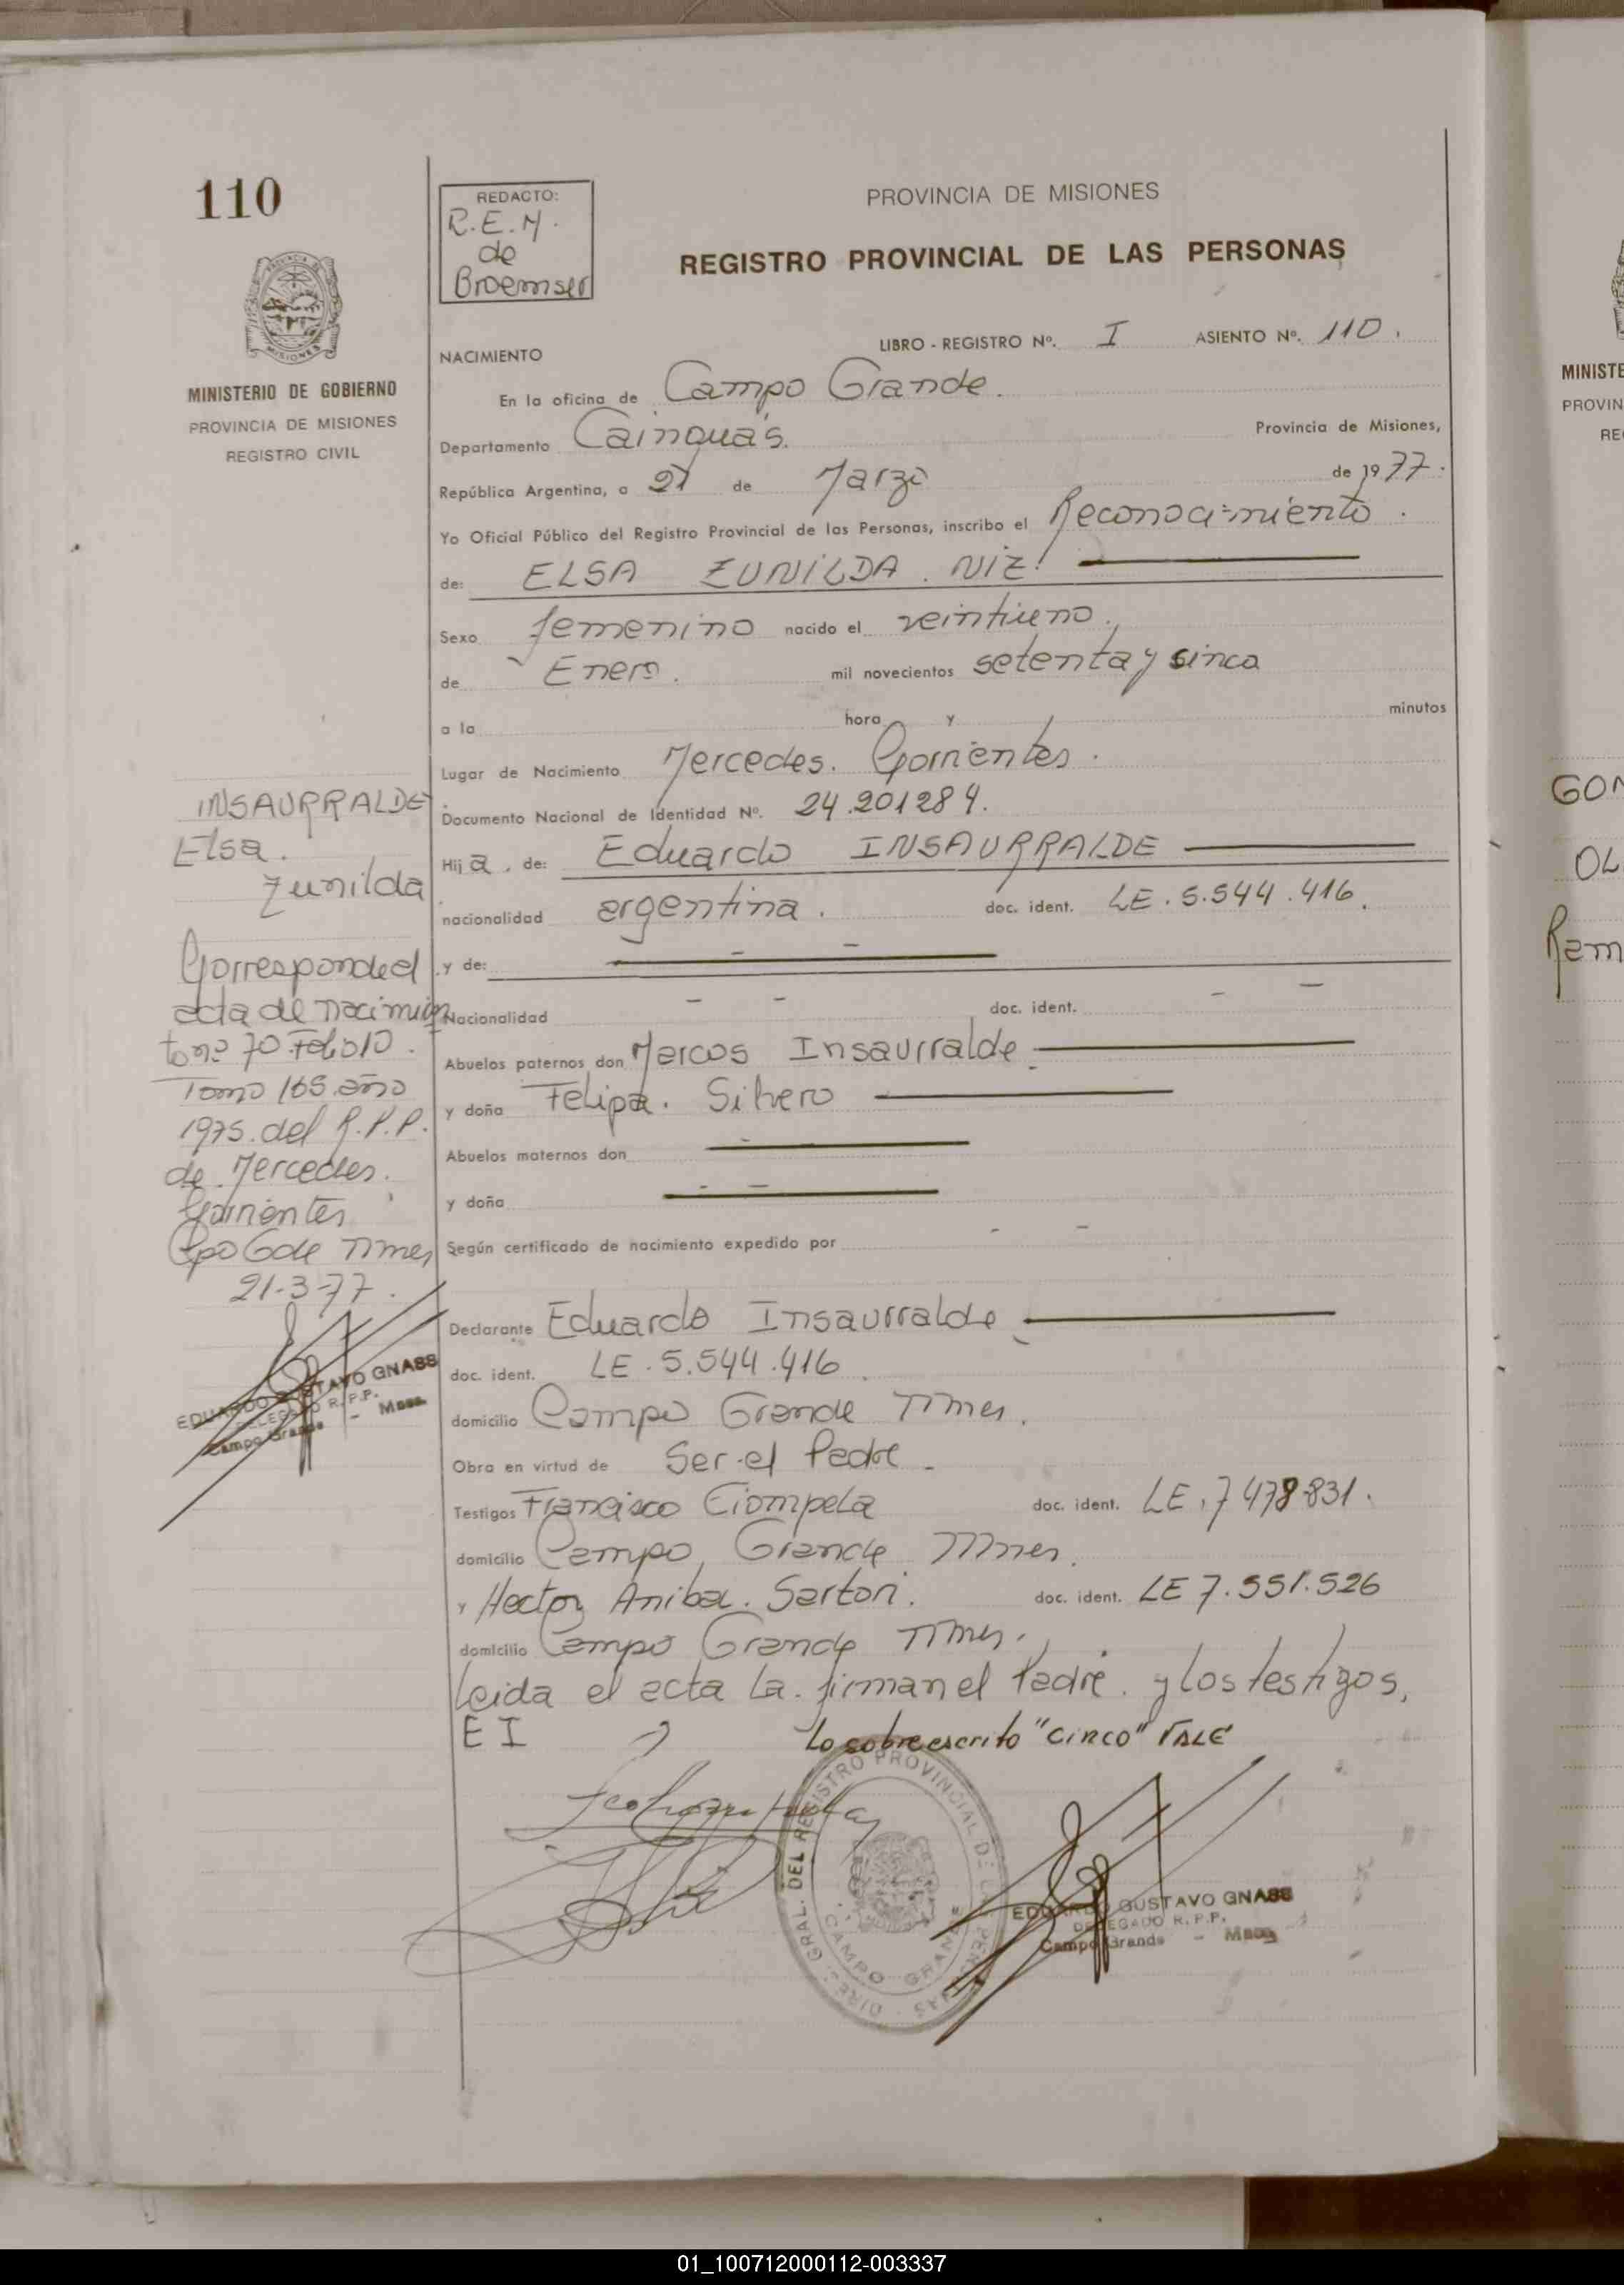 110
MINISTERIO DE GOBIERNO
PROVINCIA DE MISIONES
REGISTRO CIVIL
REDACTO:
R.E.M.
de
Broemser
PROVINCIA DE MISIONES
REGISTRO PROVINCIAL DE LAS PERSONAS
LIBRO - REGISTRO Nº. I ASIENTO Nº. 110.
NACIMIENTO
En la oficina de Campo Grande.
Departamento Cainguás. Provincia de Misiones,
República Argentina, a 21 de Marzo de 1977.
Yo Oficial Público del Registro Provincial de las Personas, inscribo el Reconocimiento.
de: ELSA ZUNILDA. NIZ.
Sexo femenino nacido el veintiuno.
de Enero. mil novecientos setenta y sinco
a la hora y minutos
Lugar de Nacimiento Mercedes. Corrientes.
Documento Nacional de Identidad Nº. 24.201284.
Hija. de: Eduardo INSAURRALDE
nacionalidad argentina. doc. ident. LE. 5.544.416.
y de:
Nacionalidad doc. ident.
Abuelos paternos don Marcos Insaurralde
y doña Felipa. Silvero
Abuelos maternos don
y doña
Según certificado de nacimiento expedido por
Declarante Eduardo Insaurralde
doc. ident. LE. 5.544.416.
domicilio Campo Grande Mnes.
Obra en virtud de Ser el Padre
Testigos Francisco Ciompela doc. ident. LE. 7 478831.
domicilio Campo Grande Mnes.
y Hector Anibal. Sartori. doc. ident. LE 7.551.526
domicilio Campo Grande Mnes.
Leida el acta la. firman el Padre. y los testigos,
E I Lo sobreescrito "cinco" VALE
INSAURRALDE
Elsa.
Zunilda
Corresponde al
acta de nacimien
to nº 70 Folio 10.
Tomo 165 año
1975. del R.P.P.
de Mercedes.
Corrientes
Cpo Gde Mnes
21-3-77.
EDUARDO GUSTAVO GNASS
DELEGADO R.P.P.
Campo Grande - Mnes.
DIRE. GRAL. DEL REGISTRO PROVINCIAL DE LAS PERSONAS
CAMPO GRANDE
EDUARDO GUSTAVO GNASS
DELEGADO R.P.P.
Campo Grande - Mnes
MINISTE
PROVIN
RE
GON
OL
Ram
01_100712000112-003337